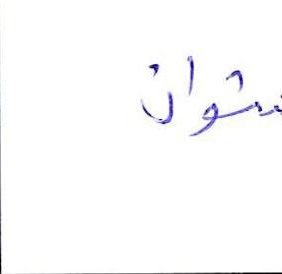 نشوان